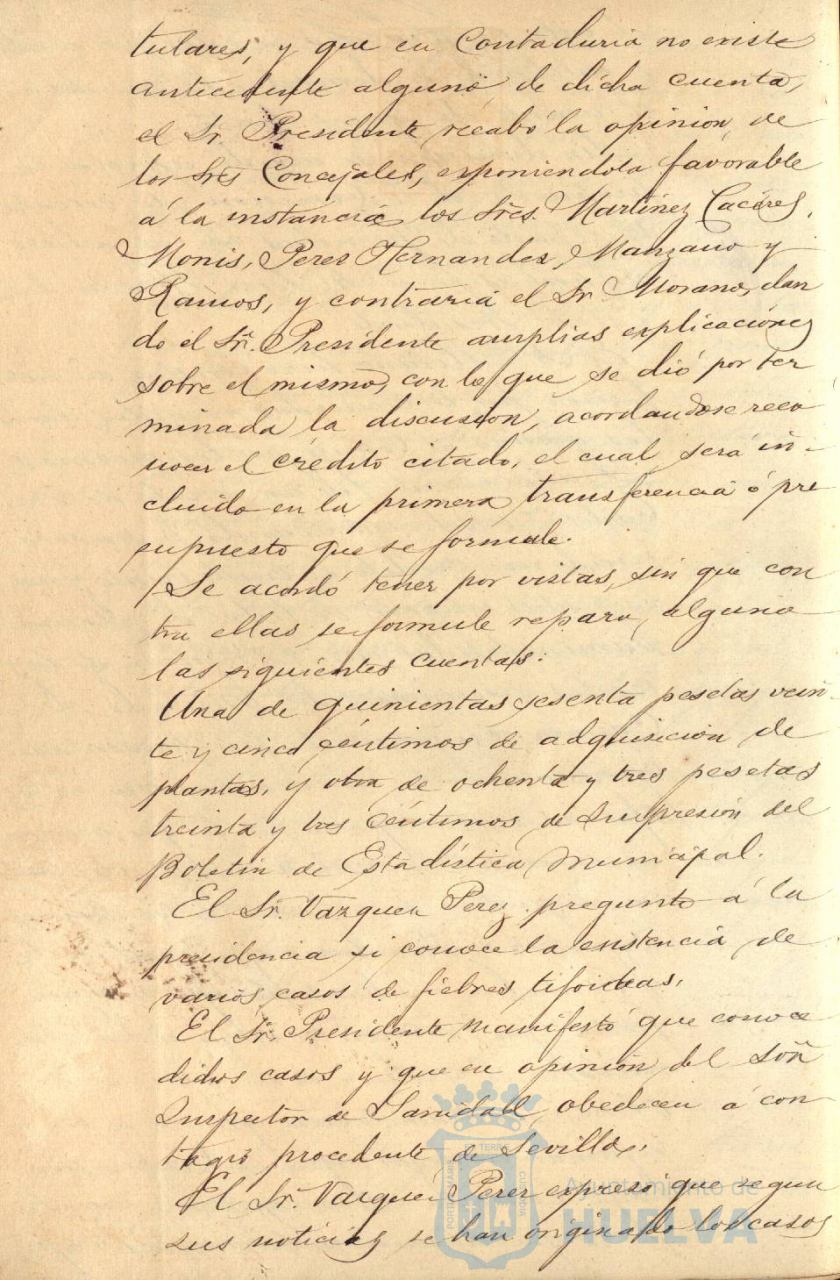 tulares, y que en Contaduria no existe
antecedente alguno de dicha cuenta,
el Sr. Presidente recabó la opinion, de
los Sres Concejales, exponiendola favorable
á la instancia los Sres. Martinez Caceres,
Monis, Perez Hernandez, Manzano y
Ramos, y contraria el Sr. Morano, dan
do el Sr. Presidente amplias explicaciones
sobre el mismo, con lo que se dió por ter
minada la discusion, acordandose reco
nocer el crédito citado, el cual será in-
cluido en la primera transferencia ó pre
supuesto que se formule.
Se acordó tener por vistas, sin que con
tra ellas se formule reparo, alguno
las siguientes cuentas:
Una de quinientas sesenta pesetas vein-
te y cinco céntimos de adquisicion de
plantas, y otra de ochenta y tres pesetas
treinta y tres céntimos de Impresión del
Boletin de Estadistica Municipal.
El Sr. Vazquez Perez preguntó á la
presidencia si conoce la existencia de
varios casos de fiebres tifoideas.
El Sr. Presidente manifestó que conoce
dichos casos y que en opinion del Señr
Inspector de Sanidad, obedecen á con
tagio procedente de Sevilla.
El Sr. Vazquez Perez expresó que segun
sus noticias se han originado los casos
Ayuntamiento de
HUELVA